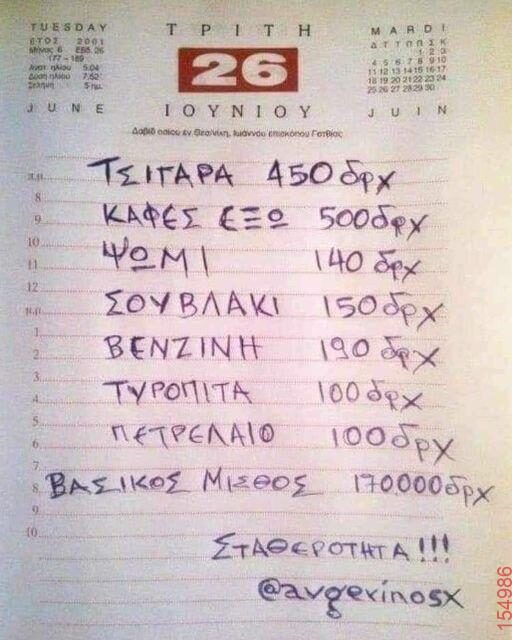 TUESDAY
ΕΤΟΣ 2001
Μήνας 6 ΕΒΔ. 26
177 - 189
Ανατ. ηλίου 5.04
Δύση ηλίου 7.52
Σελήνη 5 ημ.
JUNE
ΤΡΙΤΗ
26
ΙΟΥΝΙΟΥ
MARDI
Δ Τ Τ Π Π Σ Κ
1 2 3
4 5 6 7 8 9 10
11 12 13 14 15 16 17
18 19 20 21 22 23 24
25 26 27 28 29 30
JUIN
Δαβίδ οσίου εν Θεσ/νίκη, Ιωάννου επισκόπου Γοτθίας
π.μ. ΤΣΙΓΑΡΑ 450 δρχ
8
9 ΚΑΦΕΣ ΕΞΩ 500δρχ
10 ΨΩΜΙ 140 δρχ
11
12 ΣΟΥΒΛΑΚΙ 150 δρχ
μ.μ.
1
2 ΒΕΝΖΙΝΗ 190 δρχ
3
4 ΤΥΡΟΠΙΤΑ 100 δρχ
5 ΠΕΤΡΕΛΑΙΟ 100δρχ
6
7
8 ΒΑΣΙΚΟΣ ΜΙΣΘΟΣ 170.000δρχ
9
10 ΣΤΑΘΕΡΟΤΗΤΑ!!!
@avgerinosx
154986